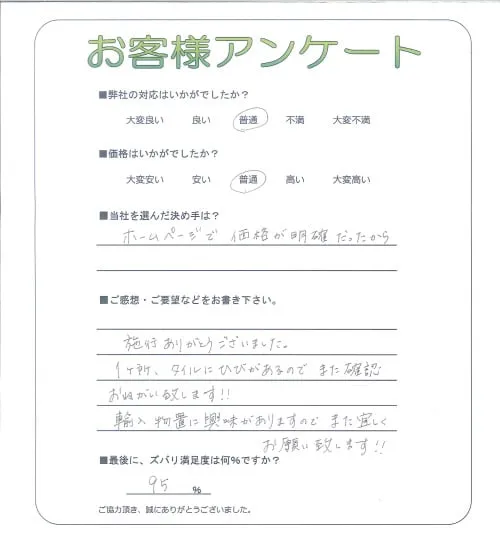 お客様アンケート
■弊社の対応はいかがでしたか？
大変良い 良い 普通 不満 大変不満
■価格はいかがでしたか？
大変安い 安い 普通 高い 大変高い
■当社を選んだ決め手は？
ホームページで 価格が明確だったから
■ご感想・ご要望などをお書き下さい。
施行ありがとうございました。
1ヶ所、タイルにひびがあるので また確認
おねがい致します!!
輸入物置に興味がありますので また宜しく
お願い致します!!
■最後に、ズバリ満足度は何%ですか？
95 %
ご協力頂き、誠にありがとうございました。